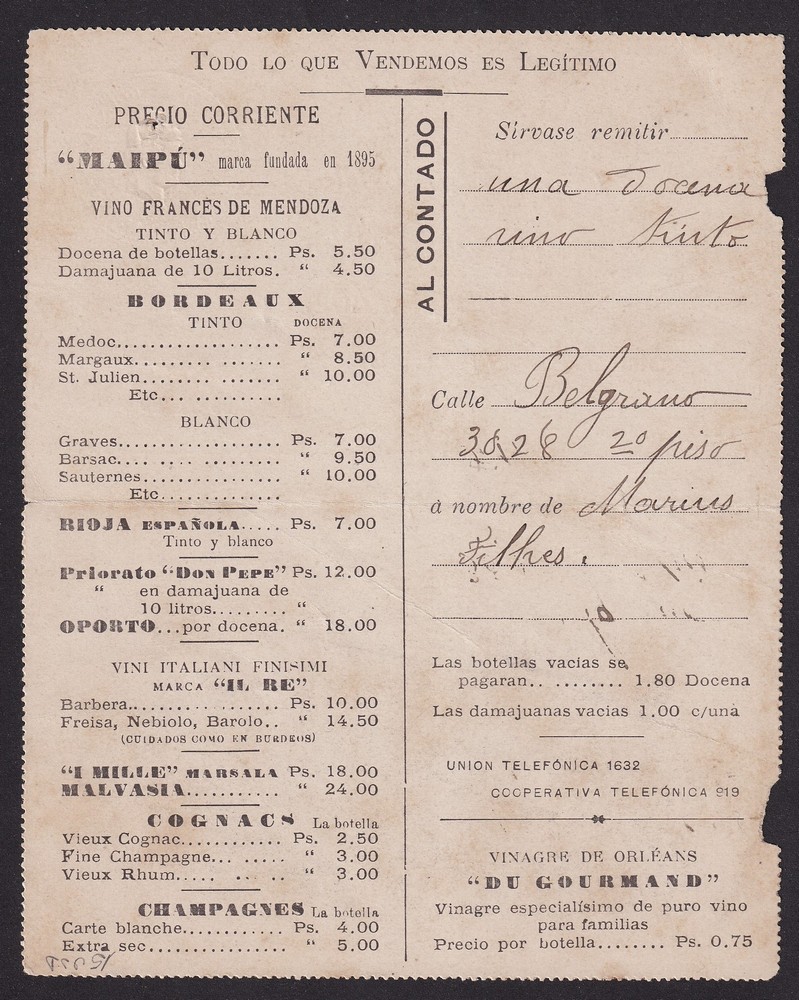 TODO LO QUE VENDEMOS ES LEGÍTIMO
PRECIO CORRIENTE
"MAIPÚ" marca fundada en 1895
VINO FRANCÉS DE MENDOZA
TINTO Y BLANCO
Docena de botellas....... Ps. 5.50
Damajuana de 10 Litros. " 4.50
BORDEAUX
TINTO DOCENA
Medoc.................. Ps. 7.00
Margaux................ " 8.50
St. Julien....... ....... " 10.00
Etc... ..........
BLANCO
Graves.................. Ps. 7.00
Barsac.... .... ......... " 9.50
Sauternes............... " 10.00
Etc.............
RIOJA ESPAÑOLA..... Ps. 7.00
Tinto y blanco
Priorato "DON PEPE" Ps. 12.00
" en damajuana de
10 litros......... "
OPORTO...por docena. " 18.00
VINI ITALIANI FINISIMI
MARCA "IL RE"
Barbera................ Ps. 10.00
Freisa, Nebiolo, Barolo.. " 14.50
(CUIDADOS COMO EN BURDEOS)
"I MILLE" MARSALA Ps. 18.00
MALVASIA.......... " 24.00
COGNACS La botella
Vieux Cognac............ Ps. 2.50
Fine Champagne... ..... " 3.00
Vieux Rhum..... ... .. " 3.00
CHAMPAGNES La botella
Carte blanche........... Ps. 4.00
Extra sec............... " 5.00
AL CONTADO
Sírvase remitir
una docena
vino tinto
Calle Belgrano
3028 2º piso
á nombre de Marius
Filhes.
Las botellas vacías se
pagaran.. ........ 1.80 Docena
Las damajuanas vacias 1.00 c/una
UNION TELEFÓNICA 1632
COOPERATIVA TELEFÓNICA 919
VINAGRE DE ORLÉANS
"DU GOURMAND"
Vinagre especialísimo de puro vino
para familias
Precio por botella........ Ps. 0.75